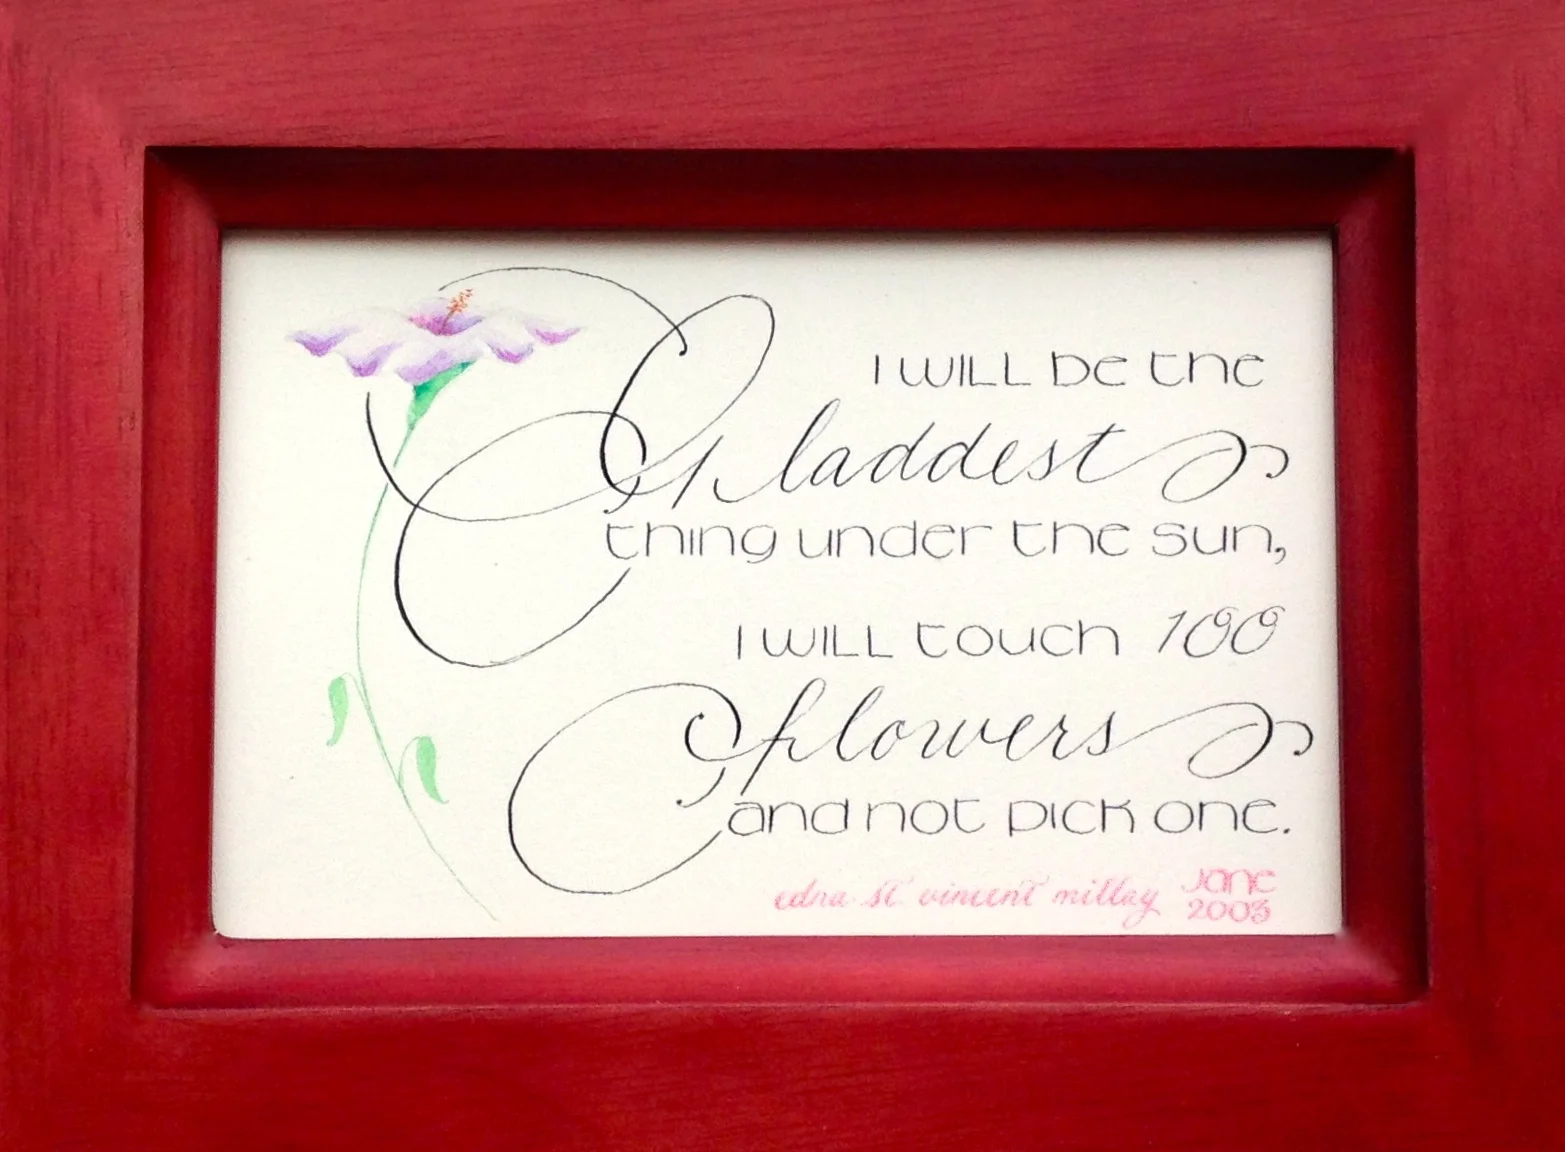 I WILL be the
Gladdest
thing under the sun,
I WILL touch 100
flowers
and not pick one.
edna st. vincent millay
Jane
2003